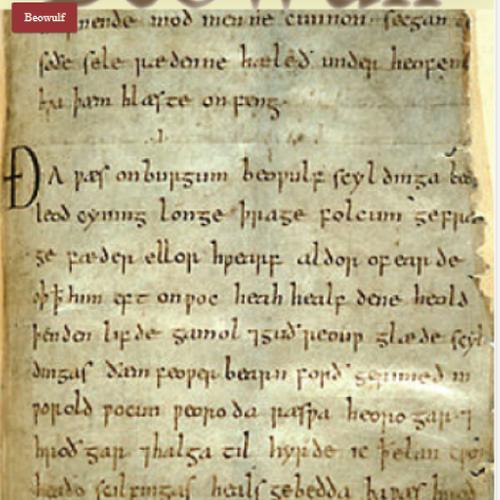 Beowulf
nende mod men ne cunnon secgan
soðe sele rædenne hæleð under heofen
hƿa þam hlæste onfeng
.I.
ÐA ƿæs onburgum beoƿulf scyldinga
leod cyning longe þrage folcum gefræ
ge fæder ellor hƿearf aldor of earde
oþ ꝥ him eft onƿoc heah healf dene heold
þenden lifde gamol ⁊guð reouƿ glæde scyl
dingas ðæm feoƿer bearn forð gerimed in
ƿorold ƿocun ƿeoroda ræsƿa heorogar ⁊
hroðgar ⁊halga til hyrde ic ꝥ elan
heaðo scilfingas heals gebedda þa ƿæs hroð